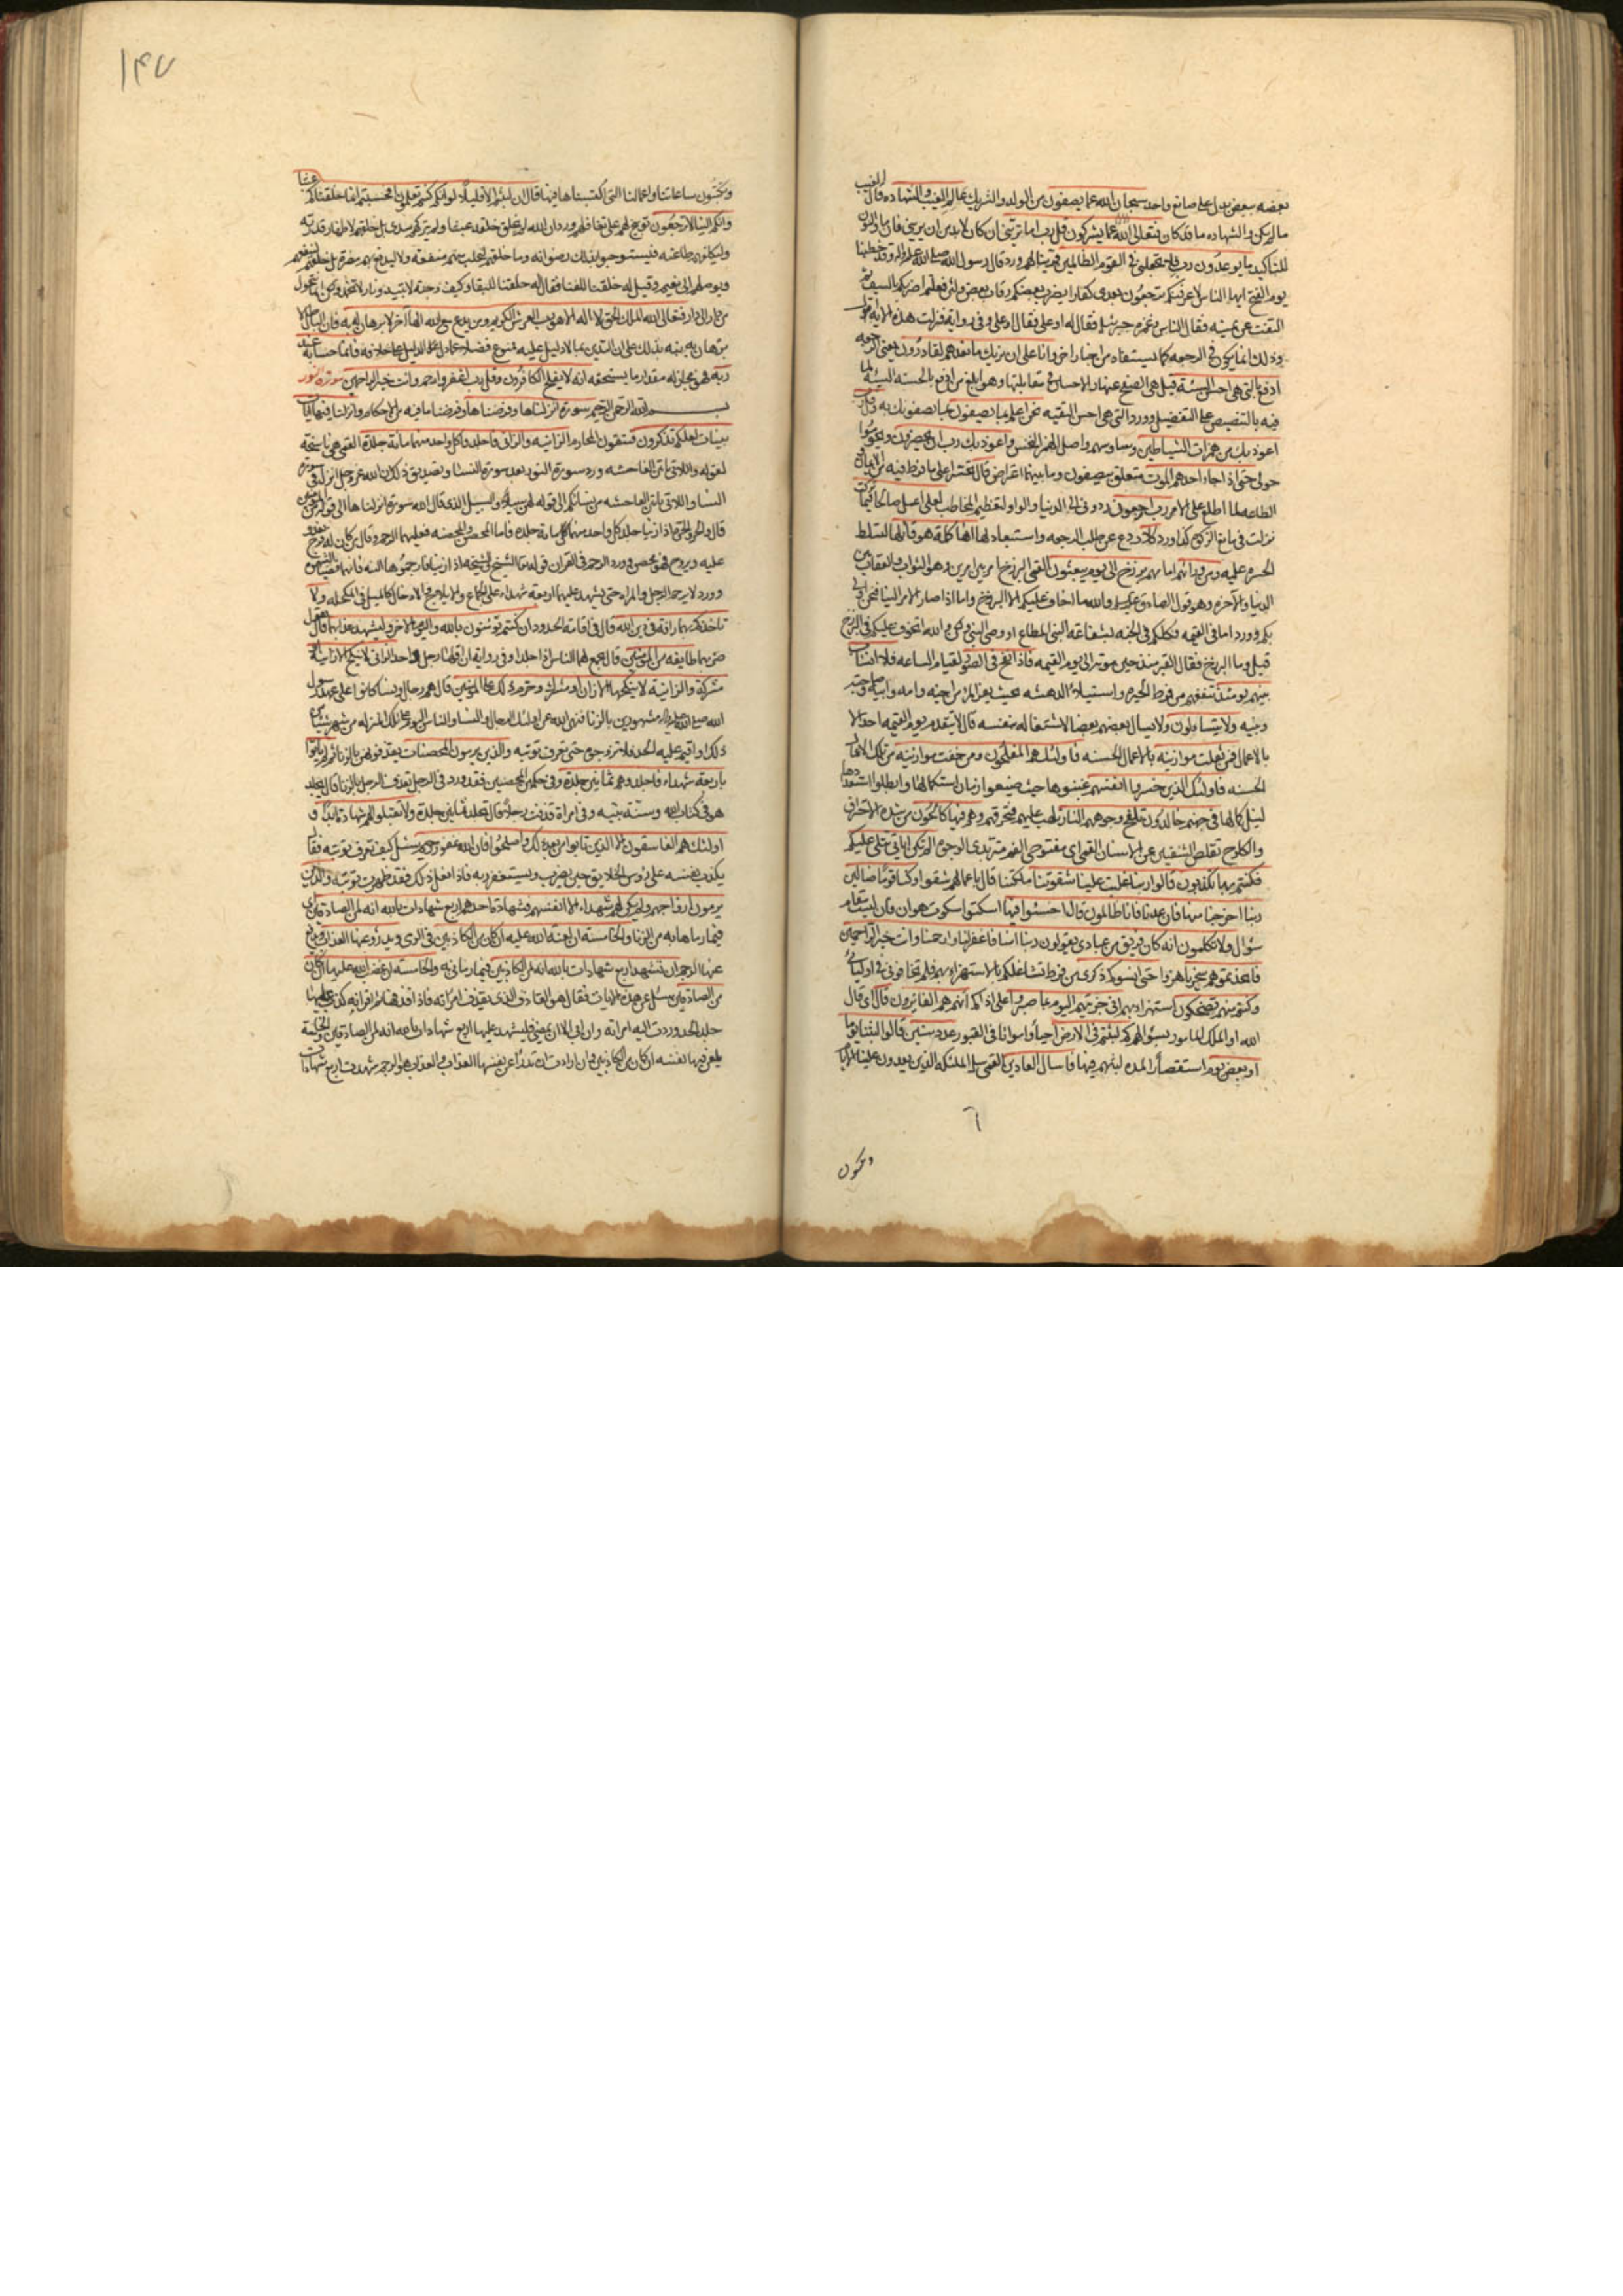 بعضه ببعض يدل على صانع واحد سبحان الله عما يصفون من الولد والشريك عالم الغيب والشهاده قال الغيب
ما لم يكن والشهاده ما قد كان فتعالى الله عما يشركون قل رب اما تريني ان كان لابد من ان تريني فان ما والنون
للتاكيد ما يوعدون رب فلا تجعلني في القوم الظالمين قرينا لهم ورد قال رسول الله صلى الله عليه واله وقد خطبنا
يوم الفتح ايها الناس لاعرفنكم ترجعون بعدى كفارا يضرب بعضكم رقاب بعض ولئن فعلتم لضربنكم بالسيف ثم
التفت عن يمينه فقال الناس غمزه جبرئيل فقال له او على فقال او على وفى رواية فنزلت هذه الايه
وذلك انما يكون في الرجعه كما يستفاد من اخبار اخر وانا على ان نريك ما نعدهم لقادرون يعنى الرجعه
ادفع بالتي هي احسن السيئة قيل هى الصفح عنها والاحسان في مقابلتها وهو ابلغ من ادفع بالحسنه السيئه لما
فيه بالتنصيص على التفضيل وورد التى هى احسن التقيه نحن اعلم بما يصفون بما يصفونك به وقل رب
اعوذ بك من همزات الشياطين وساوسهم واصل الهمز النخس واعوذ بك رب ان يحضرون ويحوموا
حولى حتى اذا جاء احدهم الموت متعلق بيصفون وما بينهما اعتراض قال تحسرا على ما فرط فيه من الايمان و
الطاعه لما اطلع على الامر رب ارجعون ردونى الى الدنيا والواو لتعظيم المخاطب لعلى اعمل صالحا فيما تركت
نزلت فى مانع الزكوة كذا ورد كلا ردع عن طلب الرجعه واستبعاد لها انها كلمة هو قائلها لتسلط
الحسره عليه ومن ورائهم امامهم برزخ الى يوم يبعثون القمى البرزخ امر بين امرين وهو الثواب والعقاب بين
الدنيا والاخره وهو قول الصادق عليه السلم والله ما اخاف عليكم الا البرزخ واما اذا صار الامر الينا فنحن اولى
بكم وورد اما فى القيمه فكلكم فى الجنه بشفاعه النبى المطاع او وصى النبى ولكنى والله اتخوف عليكم فى البرزخ
قيل وما البرزخ فقال القبر منذ حين موته الى يوم القيمه فاذا نفخ فى الصور لقيام الساعه فلا انساب
بينهم يومئذ تنفعهم من فرط الحيره واستيلاء الدهشه بحيث يفر المرء من اخيه وامه وابيه وصاحبته
وبنيه ولا يتساءلون ولا يسال بعضهم بعضا لاشتغاله بنفسه قال لا يتقدم يوم القيمه احد الا
بالاعمال فمن ثقلت موازينه بالاعمال الحسنه فاولئك هم المفلحون ومن خفت موازينه من تلك الاعمال
الحسنه فاولئك الذين خسروا انفسهم غبنوها حيث ضيعوا زمان استكمالها وابطلوا استعدادها
لنيل كمالها فى جهنم خالدون تلفح وجوههم النار تلهب عليهم فتحرقهم وهم فيها كالحون من شده الاحتراق
والكلوح تقلص الشفتين عن الاسنان القمى اى مفتوحى الفم متربدى الوجوه الم تكن اياتى تتلى عليكم
فكنتم بها تكذبون قالوا ربنا غلبت علينا شقوتنا ملكتنا قال باعمالهم شقوا وكنا قوما ضالين
ربنا اخرجنا منها فان عدنا فانا ظالمون قال اخسئوا فيها اسكتوا سكوت هوان فان ليست مقام
سؤال ولا تكلمون انه كان فريق من عبادى يقولون ربنا امنا فاغفر لنا وارحمنا وانت خير الراحمين
فاتخذتموهم سخريا هزوا حتى انسوكم ذكرى من فرط تشاغلكم بالاستهزاء بهم فلم تخافونى فى اوليائى
وكنتم منهم تضحكون استهزاء بهم انى جزيتهم اليوم بما صبروا على اذاكم انهم هم الفائزون قال اى قال
الله او الملك المامور بسؤالهم كم لبثتم فى الارض احياء وامواتا فى القبور عدد سنين قالوا لبثنا يوما
او بعض يوم استقصارا لمده لبثهم فيها فاسال العادين القمى سل الملئكه الذين يعدون علينا الايام
ويكتبون
١٤٧
ويكتبون ساعاتنا واعمالنا التى اكتسبناها فيها قال ان لبثتم الا قليلا لو انكم كنتم تعلمون افحسبتم انما خلقناكم عبثا
وانكم الينا لا ترجعون توبيخ لهم على تغافلهم ورد ان الله لم يخلق خلقه عبثا ولم يتركهم سدى بل خلقهم لاظهار قدرته
وليكلفهم طاعته فيستوجبوا بذلك رضوانه وما خلقهم ليجلب منهم منفعة ولا ليدفع بهم مضرة بل خلقهم لينفعهم
ويوصلهم الى نعيم وقيل له خلقنا للفناء فقال له خلقنا للبقاء وكيف وجنه لا تبيد ونار لا تخمد ولكن انما نتحول
من دار الى دار فتعالى الله الملك الحق لا اله الا هو رب العرش الكريم ومن يدع مع الله الها آخر لا برهان له به فان الباطل لا
برهان به نبه بذلك على ان التدين بما لا دليل عليه ممنوع فضلا عما دل الدليل على خلافه فانما حسابه عند
ربه فهو مجاز له مقدار ما يستحقه انه لا يفلح الكافرون وقل رب اغفر وارحم وانت خير الراحمين سورة النور
بسم الله الرحمن الرحيم سورة انزلناها وفرضناها وفرضنا ما فيه من الاحكام وانزلنا فيها ايات
بينات لعلكم تذكرون فتتقون المحارم الزانيه والزانى فاجلدوا كل واحد منهما ماية جلدة القمى هى ناسخة
لقوله واللاتى ياتين الفاحشه ورد سورة النور بعد سورة النساء وتصديق ذلك ان الله عز وجل انزل فى سورة
النساء واللاتى ياتين الفاحشه من نسائكم الى قوله لهن سبيلا والسبيل الذى قال الله سورة انزلناها الى قوله المؤمنين
قال والحر والحرة اذا زنيا جلد كل واحد منهما ماية جلده فاما المحصن والمحصنه فعليهما الرجم وقال من كان له فرج يغدو
عليه ويروح فهو محصن وورد الرجم فى القران قوله تعالى الشيخ والشيخه اذا زنيا فارجموها البته فانهما قضيا الشهوه
وورد لا يرجم الرجل والمراه حتى يشهد عليهما اربعة شهداء على الجماع والايلاج والادخال كالميل فى المكحله ولا
تاخذكم بهما رافة فى دين الله قال فى اقامة الحدود ان كنتم تومنون بالله واليوم الاخر وليشهد عذابهما قال يقول
ضربهما طايفه من المؤمنين قال يجمع لهما الناس اذا جلدوا وفى رواية ان اقلها رجل واحد الزانى لا ينكح الا زانية او
مشركة والزانية لا ينكحها الا زان او مشرك وحرم ذلك على المؤمنين قال هم رجال ونساء كانوا على عهد رسول
الله صلى الله عليه واله مشهورين بالزنا فنهى الله عن اولئك الرجال والنساء والناس اليوم على تلك المنزله من شهر شيئا من
ذلك او اقيم عليه الحد فلا تزوجوه حتى تعرف توبته والذين يرمون المحصنات يقذفونهن بالزنا ثم لم ياتوا
باربعة شهداء فاجلدوهم ثمانين جلدة وفى حكمهن المحصنين فقد ورد فى الرجل يقذف الرجل بالزنا قال يجلد
هو فى كتاب الله وسنة نبيه وفى امراة قذفت رجلا قال تجلد ثمانين جلدة ولا تقبلوا لهم شهادة ابدا و
اولئك هم الفاسقون الا الذين تابوا من بعد ذلك واصلحوا فان الله غفور رحيم سئل كيف تعرف توبته فقال
يكذب نفسه على رؤس الخلايق حين يضرب ويستغفر ربه فاذا فعل ذلك فقد ظهرت توبته والذين
يرمون ازواجهم ولم يكن لهم شهداء الا انفسهم فشهادة احدهم اربع شهادات بالله انه لمن الصادقين اى
فيما رماها به من الزنا والخامسة ان لعنة الله عليه ان كان من الكاذبين فى الرمى ويدرؤ عنها العذاب ويدفع
عنها الرجم ان تشهد اربع شهادات بالله انه لمن الكاذبين فيما رمانى به والخامسه ان غضب الله عليها ان كان
من الصادقين سئل عن هذه الايات فقال هو القاذف الذى يقذف امراته فاذا قذفها ثم اقر انه كذب عليها
جلد الحد وردت اليه امراته وان ابى الا ان يمضى فليشهد عليها اربع شهادات بالله انه لمن الصادقين والخامسة
يلعن فيها نفسه ان كان من الكاذبين وان ارادت ان تدرا عن نفسها العذاب والعذاب هو الرجم شهدت اربع شهادات